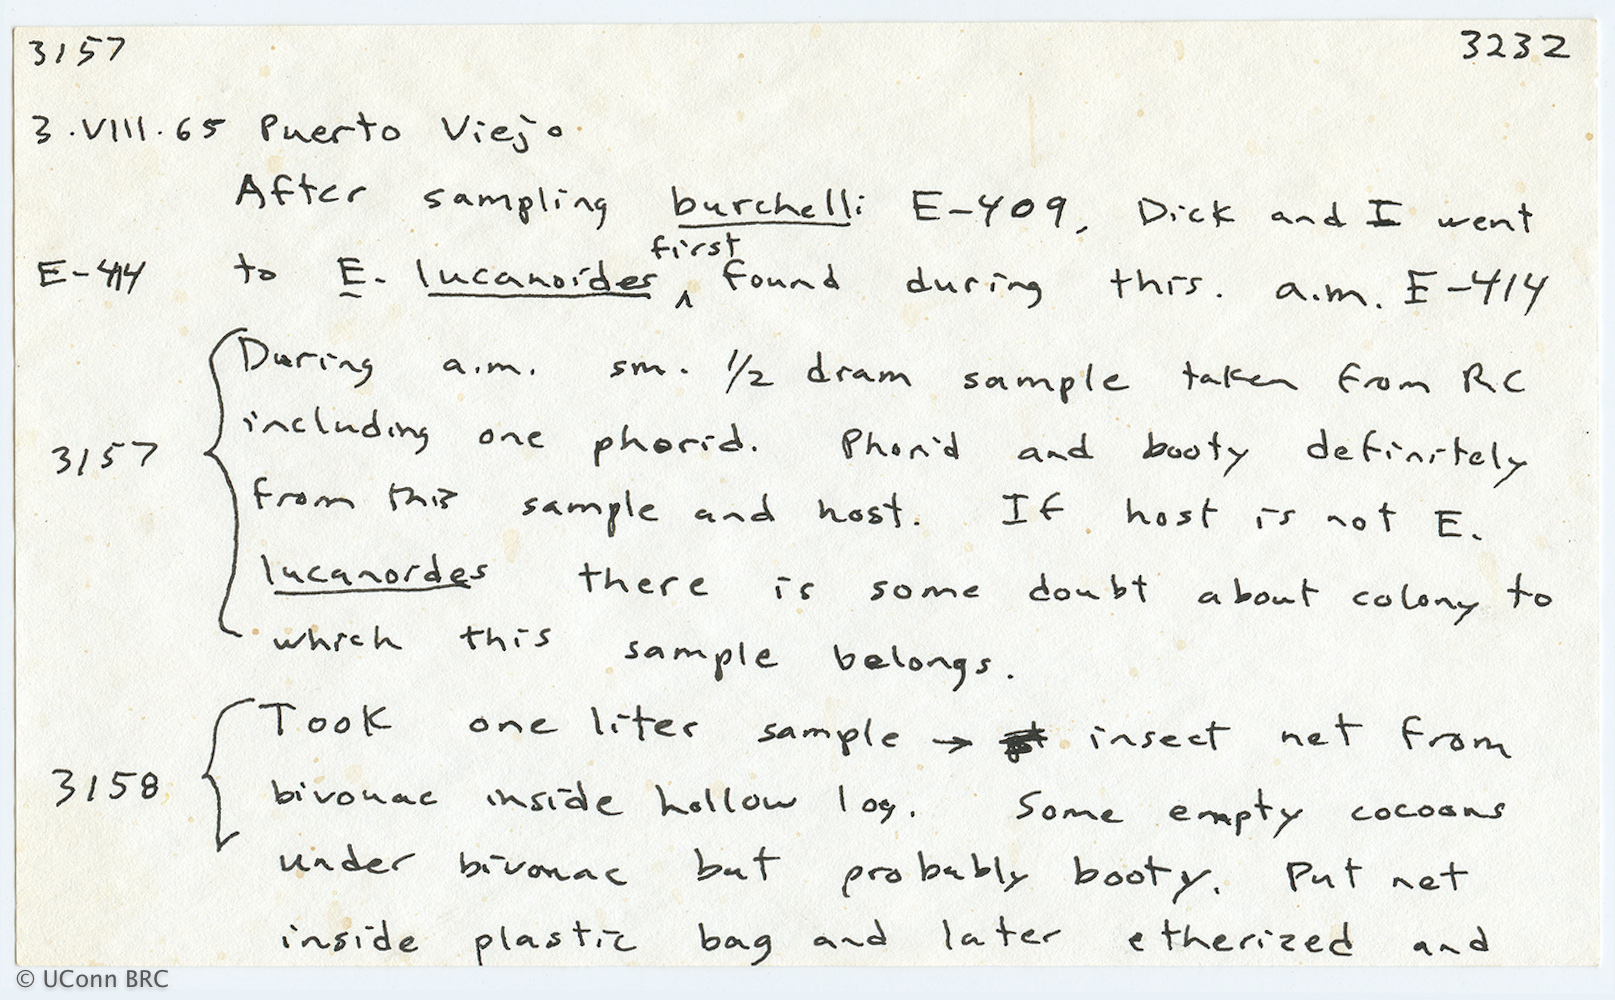 3157 3232
3.VIII.65 Puerto Viejo.
After sampling burchelli E-409, Dick and I went
first
E-414 to E. lucanoides ^ found during this. a.m. E-414
During a.m. sm. 1/2 dram sample taken from RC
including one phorid. Phorid and booty definitely
3157
from this sample and host. If host is not E.
lucanoides there is some doubt about colony to
which this sample belongs.
Took one liter sample → insect net from
3158 bivouac inside hollow log. Some empty cocoons
under bivouac but probably booty. Put net
inside plastic bag and later etherized and
© UConn BRC